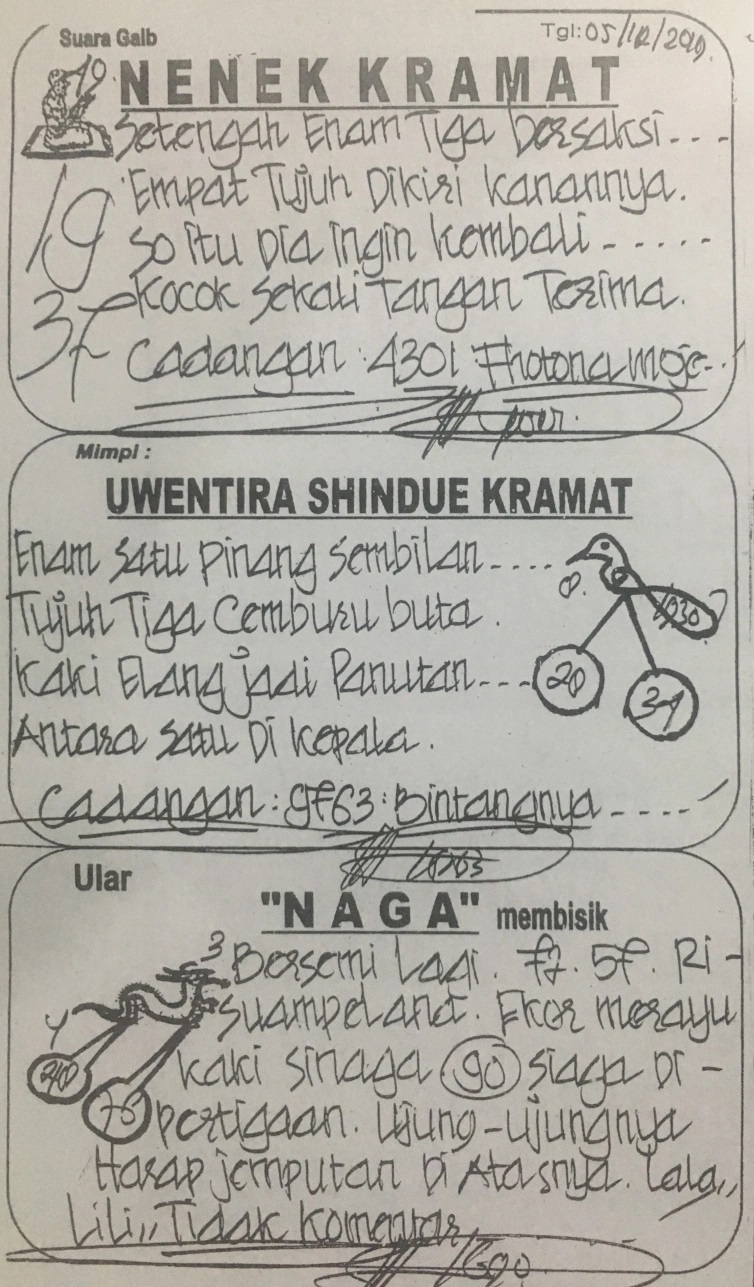 Suara Gaib
Tgl: 05/12/2019.
NENEK KRAMAT
Setengah Enam Tiga bersaksi....
Empat Tujuh Dikiri kanannya.
19
So itu Dia ingin kembali -----
Kocok Sekali Tangan Terima.
37
Cadangan : 4301
Mimpi :
UWENTIRA SHINDUE KRAMAT
Enam Satu Pinang Sembilan....
Tujuh Tiga Cemburu buta.
Kaki Elang jadi Panutan....
20
Antara Satu Di kepala.
Cadangan : 9763 : Bintangnya ....
Ular
"NAGA" membisik
3
Bersemi Lagi. Ri-
Ekor merayu
kaki sinaga 90 siaga Di-
pertigaan. Ujung-ujungnya
Harap jemputan Di Atasnya. Lala,,
Lili,, Tidak Komentar